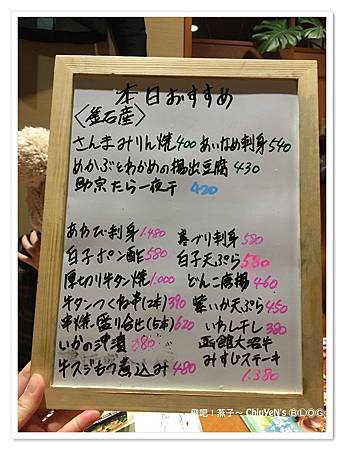 本日おすすめ
〈釜石産〉
さんまみりん焼400 あいなめ刺身540
めかぶとわかめの揚出豆腐 430
助宗たら一夜干 420
あわび刺身1.480 寒ブリ刺身580
白子ポン酢580 白子天ぷら550
厚切り牛タン焼1.000 どんこ唐揚460
牛タンつくね串(2本)390 紫いか天ぷら450
串焼き盛り合せ(5本)620 いわし干し380
いかの沖漬380 函館大沼牛
みすじステーキ
牛スジもつ煮込み480 1.380
飛吧!燕子~ ChiuYeN's BLOG